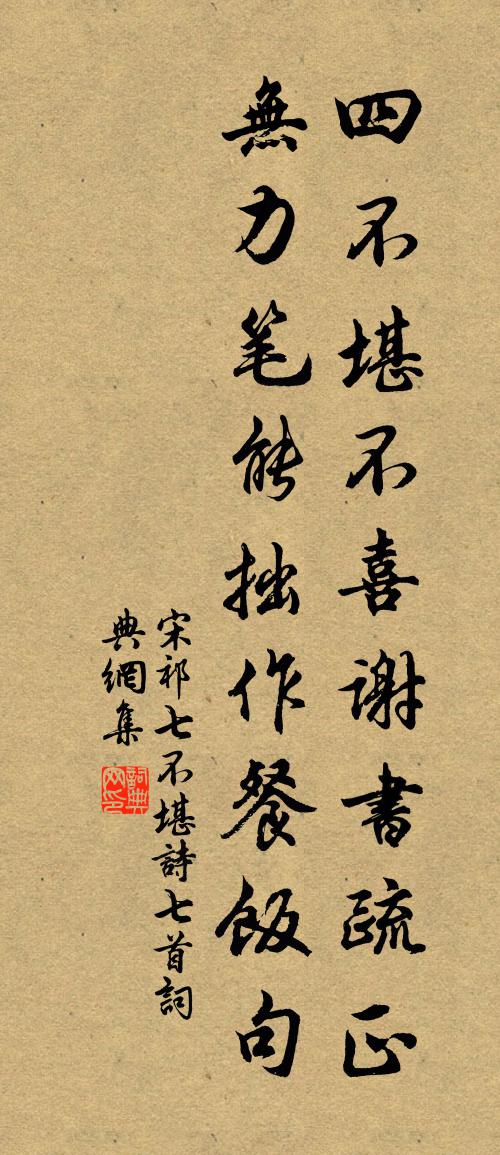 四不堪不喜謝書疏正
無力笔能拙作餐飯句
宋祁七不堪詩七首詞
典網集
詞典
网印